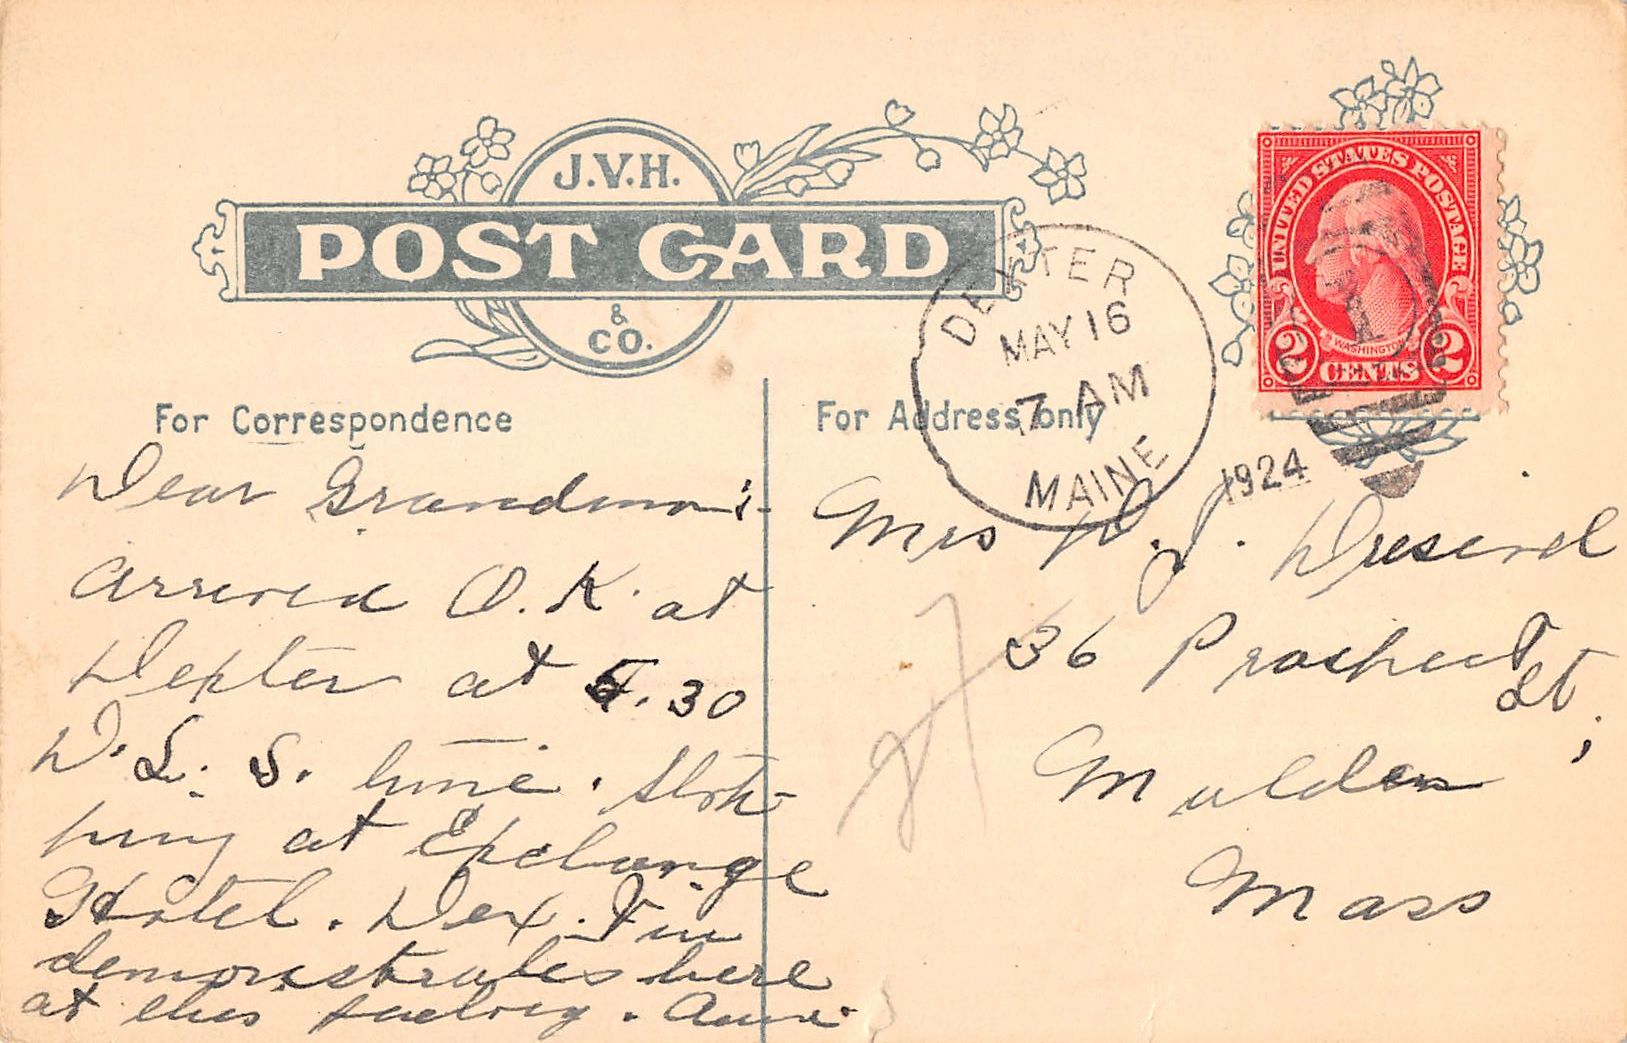 J.V.H.
POST CARD
& CO.
For Correspondence
For Address only
DEXTER
MAY 16
7 AM
MAINE
1924
UNITED STATES POSTAGE
WASHINGTON
2 CENTS 2
Dear Grandma:-
Arrived O.K. at
Dexter at 5.30
D. L. S. time. Stop-
ping at Exchange
Hotel. Dex.
demonstrates here
at this factory.
Mrs W. J.
36 Prospect
St,
Malden
Mass
27